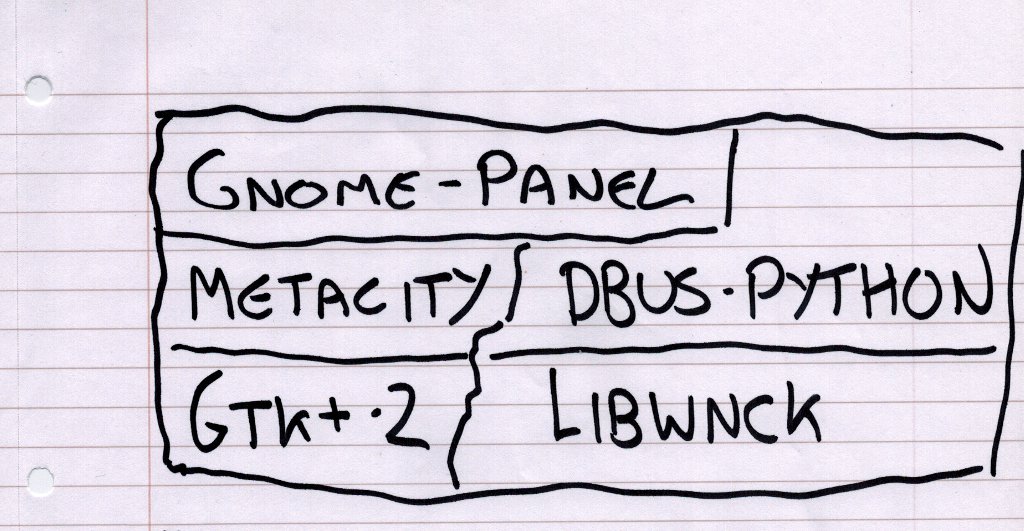 GNOME-PANEL
METACITY DBUS-PYTHON
GTK+·2 LIBWNCK